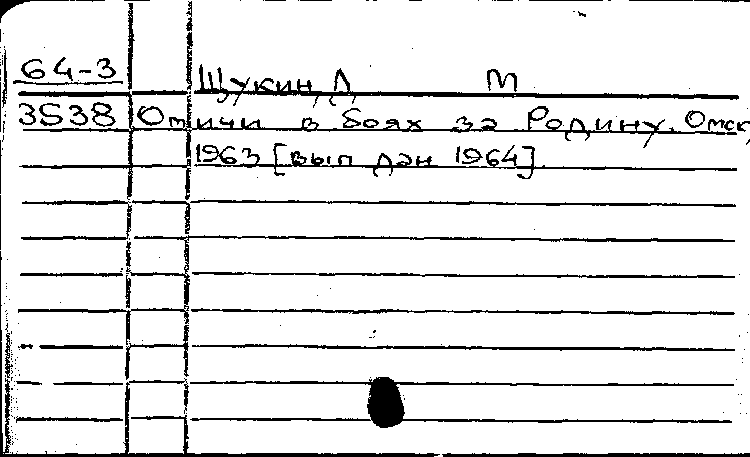 64-3
Щукин, Д М
3538 Отличи в боях за Родину. Омск,
1963 [вып дан 1964]